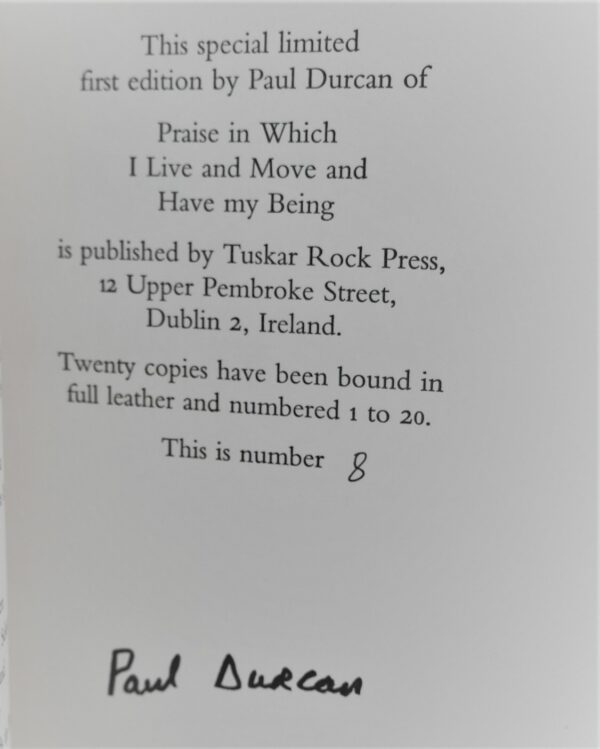 This special limited
first edition by Paul Durcan of
Praise in Which
I Live and Move and
Have my Being
is published by Tuskar Rock Press,
12 Upper Pembroke Street,
Dublin 2, Ireland.
Twenty copies have been bound in
full leather and numbered 1 to 20.
This is number 8
Paul Durcan